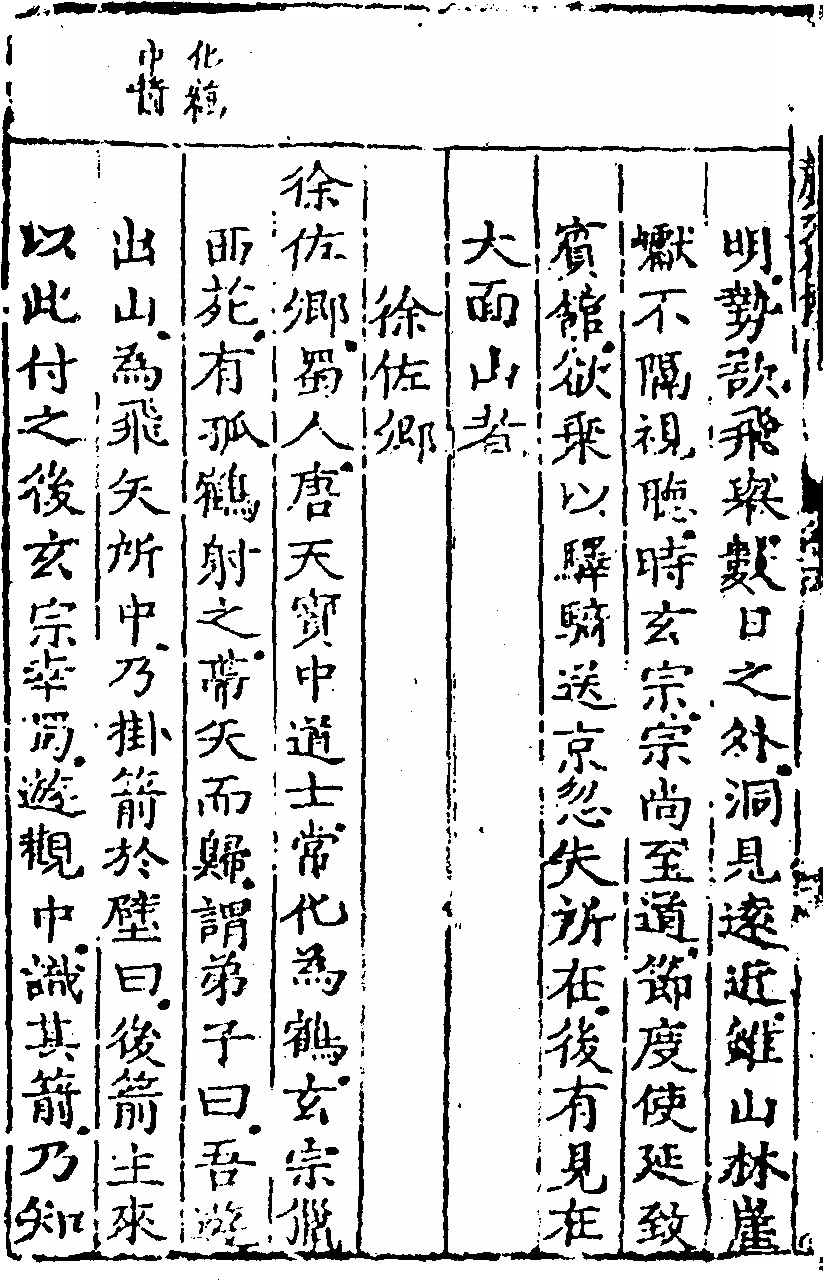 化鶴
巾箭
明勢欲飛舉數日之外洞見遠近雖山林崖
巘不隔視聽時玄宗宗尚至道節度使延致
賓館欲乘以驛騎送京忽失所在後有見在
大面山者
徐佐卿
徐佐卿蜀人唐天寶中道士常化為鶴玄宗獵
西苑有孤鶴射之帶矢而歸謂弟子曰吾遊
出山為飛矢所中乃掛箭於壁曰後箭主來
以此付之後玄宗幸蜀遊觀中識其箭乃知